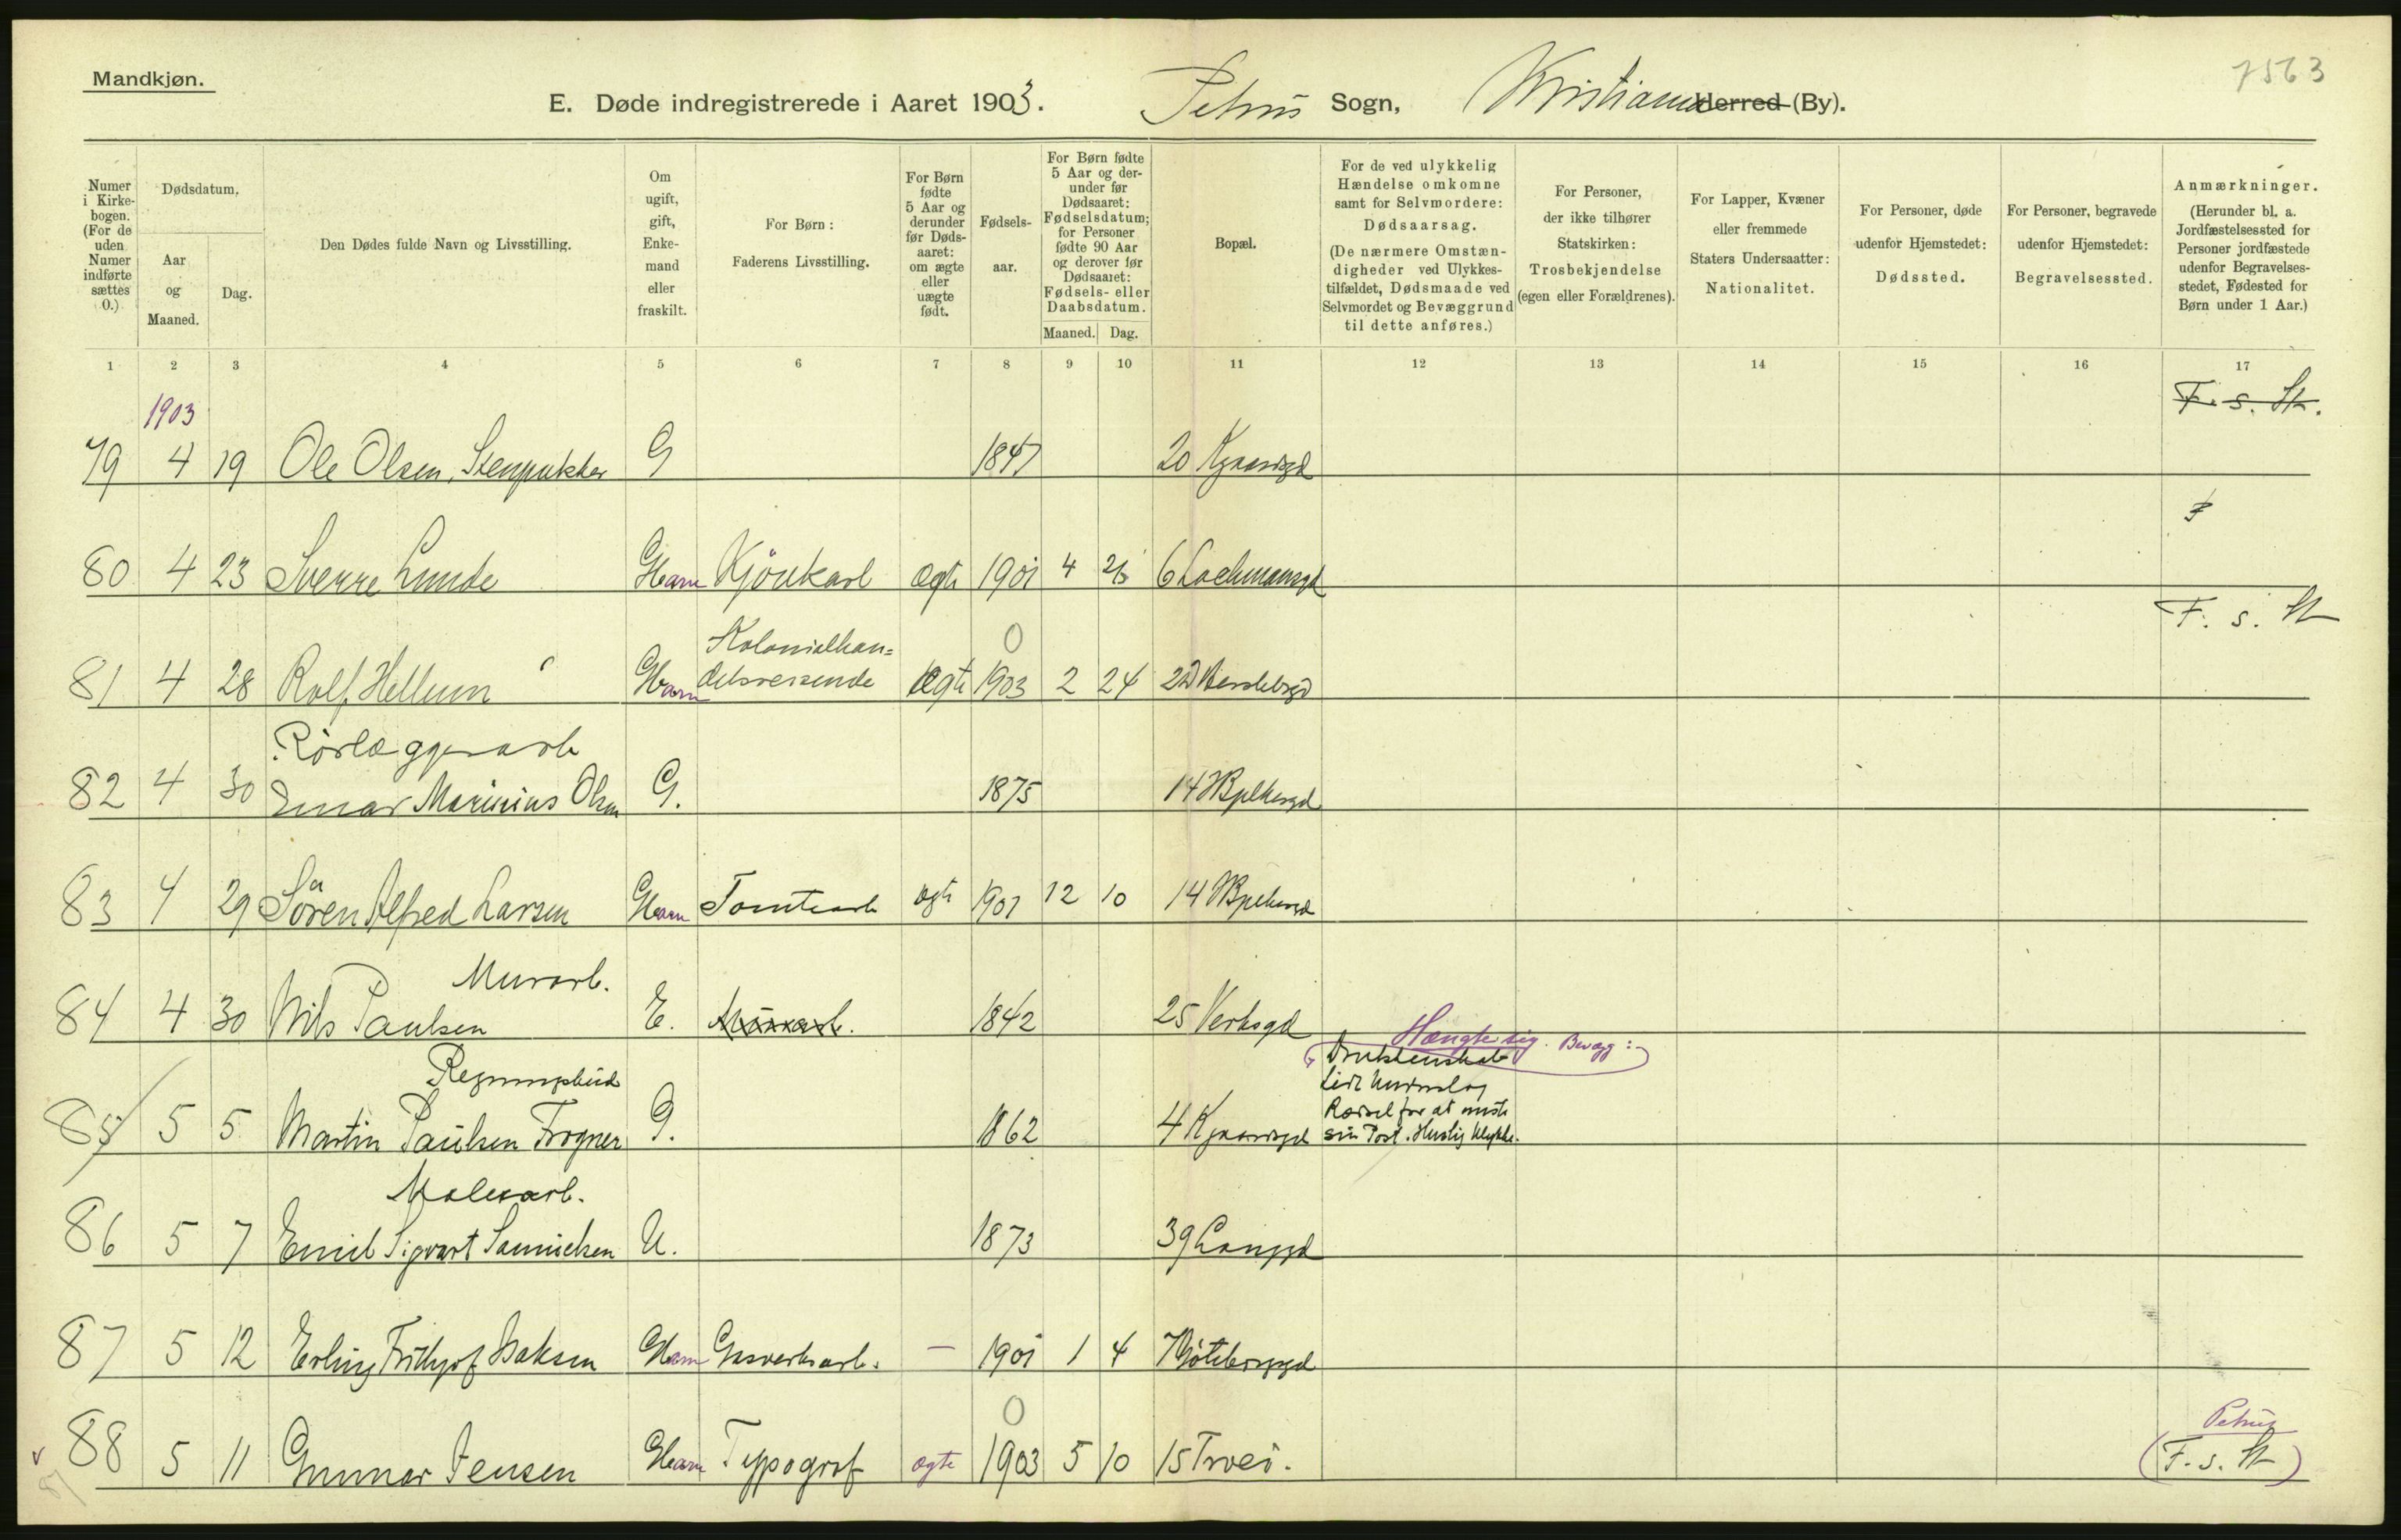 Mandkjøn.
7563
E. Døde indregistrerede i Aaret 1903. Petrus Sogn, Kristiania Herred (By).
Numer i Kirke-bogen. (For de uden Numer indførte sættes 0.)
Dødsdatum.
Aar og Maaned.
Dag.
Den Dødes fulde Navn og Livsstilling.
Om ugift, gift, Enke-mand eller fraskilt.
For Børn: Faderens Livsstilling.
For Børn fødte 5 Aar og derunder før Døds-aaret: om ægte eller uægte født.
Fødsels-aar.
For Børn fødte 5 Aar og der-under før Dødsaaret: Fødselsdatum; for Personer fødte 90 Aar og derover før Dødsaaret: Fødsels- eller Daabsdatum.
Maaned. Dag.
Bopæl.
For de ved ulykkelig Hændelse omkomne samt for Selvmordere: Dødsaarsag. (De nærmere Omstæn-digheder ved Ulykkes-tilfældet, Dødsmaade ved Selvmordet og Bevæggrund til dette anføres.)
For Personer, der ikke tilhører Statskirken: Trosbekjendelse (egen eller Forældrenes).
For Lapper, Kvæner eller fremmede Staters Undersaatter: Nationalitet.
For Personer, døde udenfor Hjemstedet: Dødssted.
For Personer, begravede udenfor Hjemstedet: Begravelsessted.
Anmærkninger. (Herunder bl. a. Jordfæstelsessted for Personer jordfæstede udenfor Begravelses-stedet, Fødested for Børn under 1 Aar.)
1 2 3 4 5 6 7 8 9 10 11 12 13 14 15 16 17
1903
F. s. St.
79 4 19 Ole Olsen, Stenpukker G 1847 20
80 4 23 Sverre Lunde Barn Kjørekarl ægte 1901 4 6
F. s. St
Kolonialhan= 0
81 4 28 Rolf Hellum Barn delsreisende ægte 1903 2 24 22
Rørlæggerarb
82 4 30 Einar Marinius Olsen G. 1875 14
83 4 29 Sören Alfred Larsen Barn Tomtearb ægte 1901 12 10 14
Murarb.
84 4 30 Nils Paulsen E. 1842 25 Verksgd
Hængte sig. Bevægg:
Regningsbud Drukkenskab
85 5 5 Martin Paulsen Frogner G. 1862 4
Rædsel for at miste
sin Post. Huslig Ulykke.
Malerarb.
86 5 7 Emil Sigvart Samuelsen U. 1873 39 Langgd
87 5 12 Erling Frithjof Isaksen Barn Gasverksarb. — 1901 1 4 7 Göteborggd
0 Petrus
88 5 11 Gunnar Jensen Barn Typograf ægte 1903 5 10 15 (F. s. St)
87